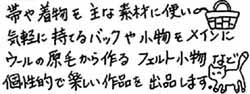 帯や着物を主な素材に使い
気軽に持てるバックや小物をメインに
ウールの原毛から作るフェルト小物など
個性的で楽しい作品を出品します。